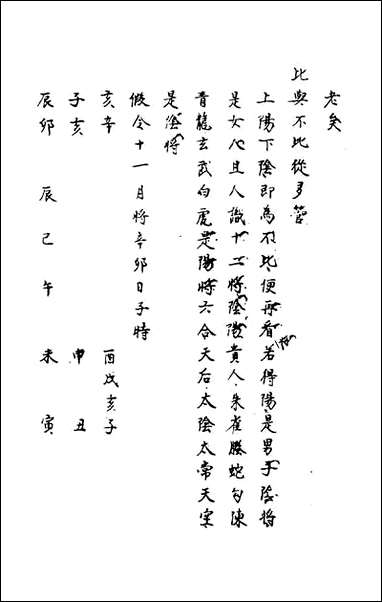 老矣
比與不比從多管
上陽下陰即為不比便再看若得陽將是男子陰將
是女人且人識十二將陰陽貴人朱雀螣蛇勾陳
青龍玄武白虎是陽將六合天后太陰太常天空
是陰將
假令十一月將辛卯日子時
亥辛 酉戌亥子
子亥 申 丑
辰卯 辰 己 午 未 寅